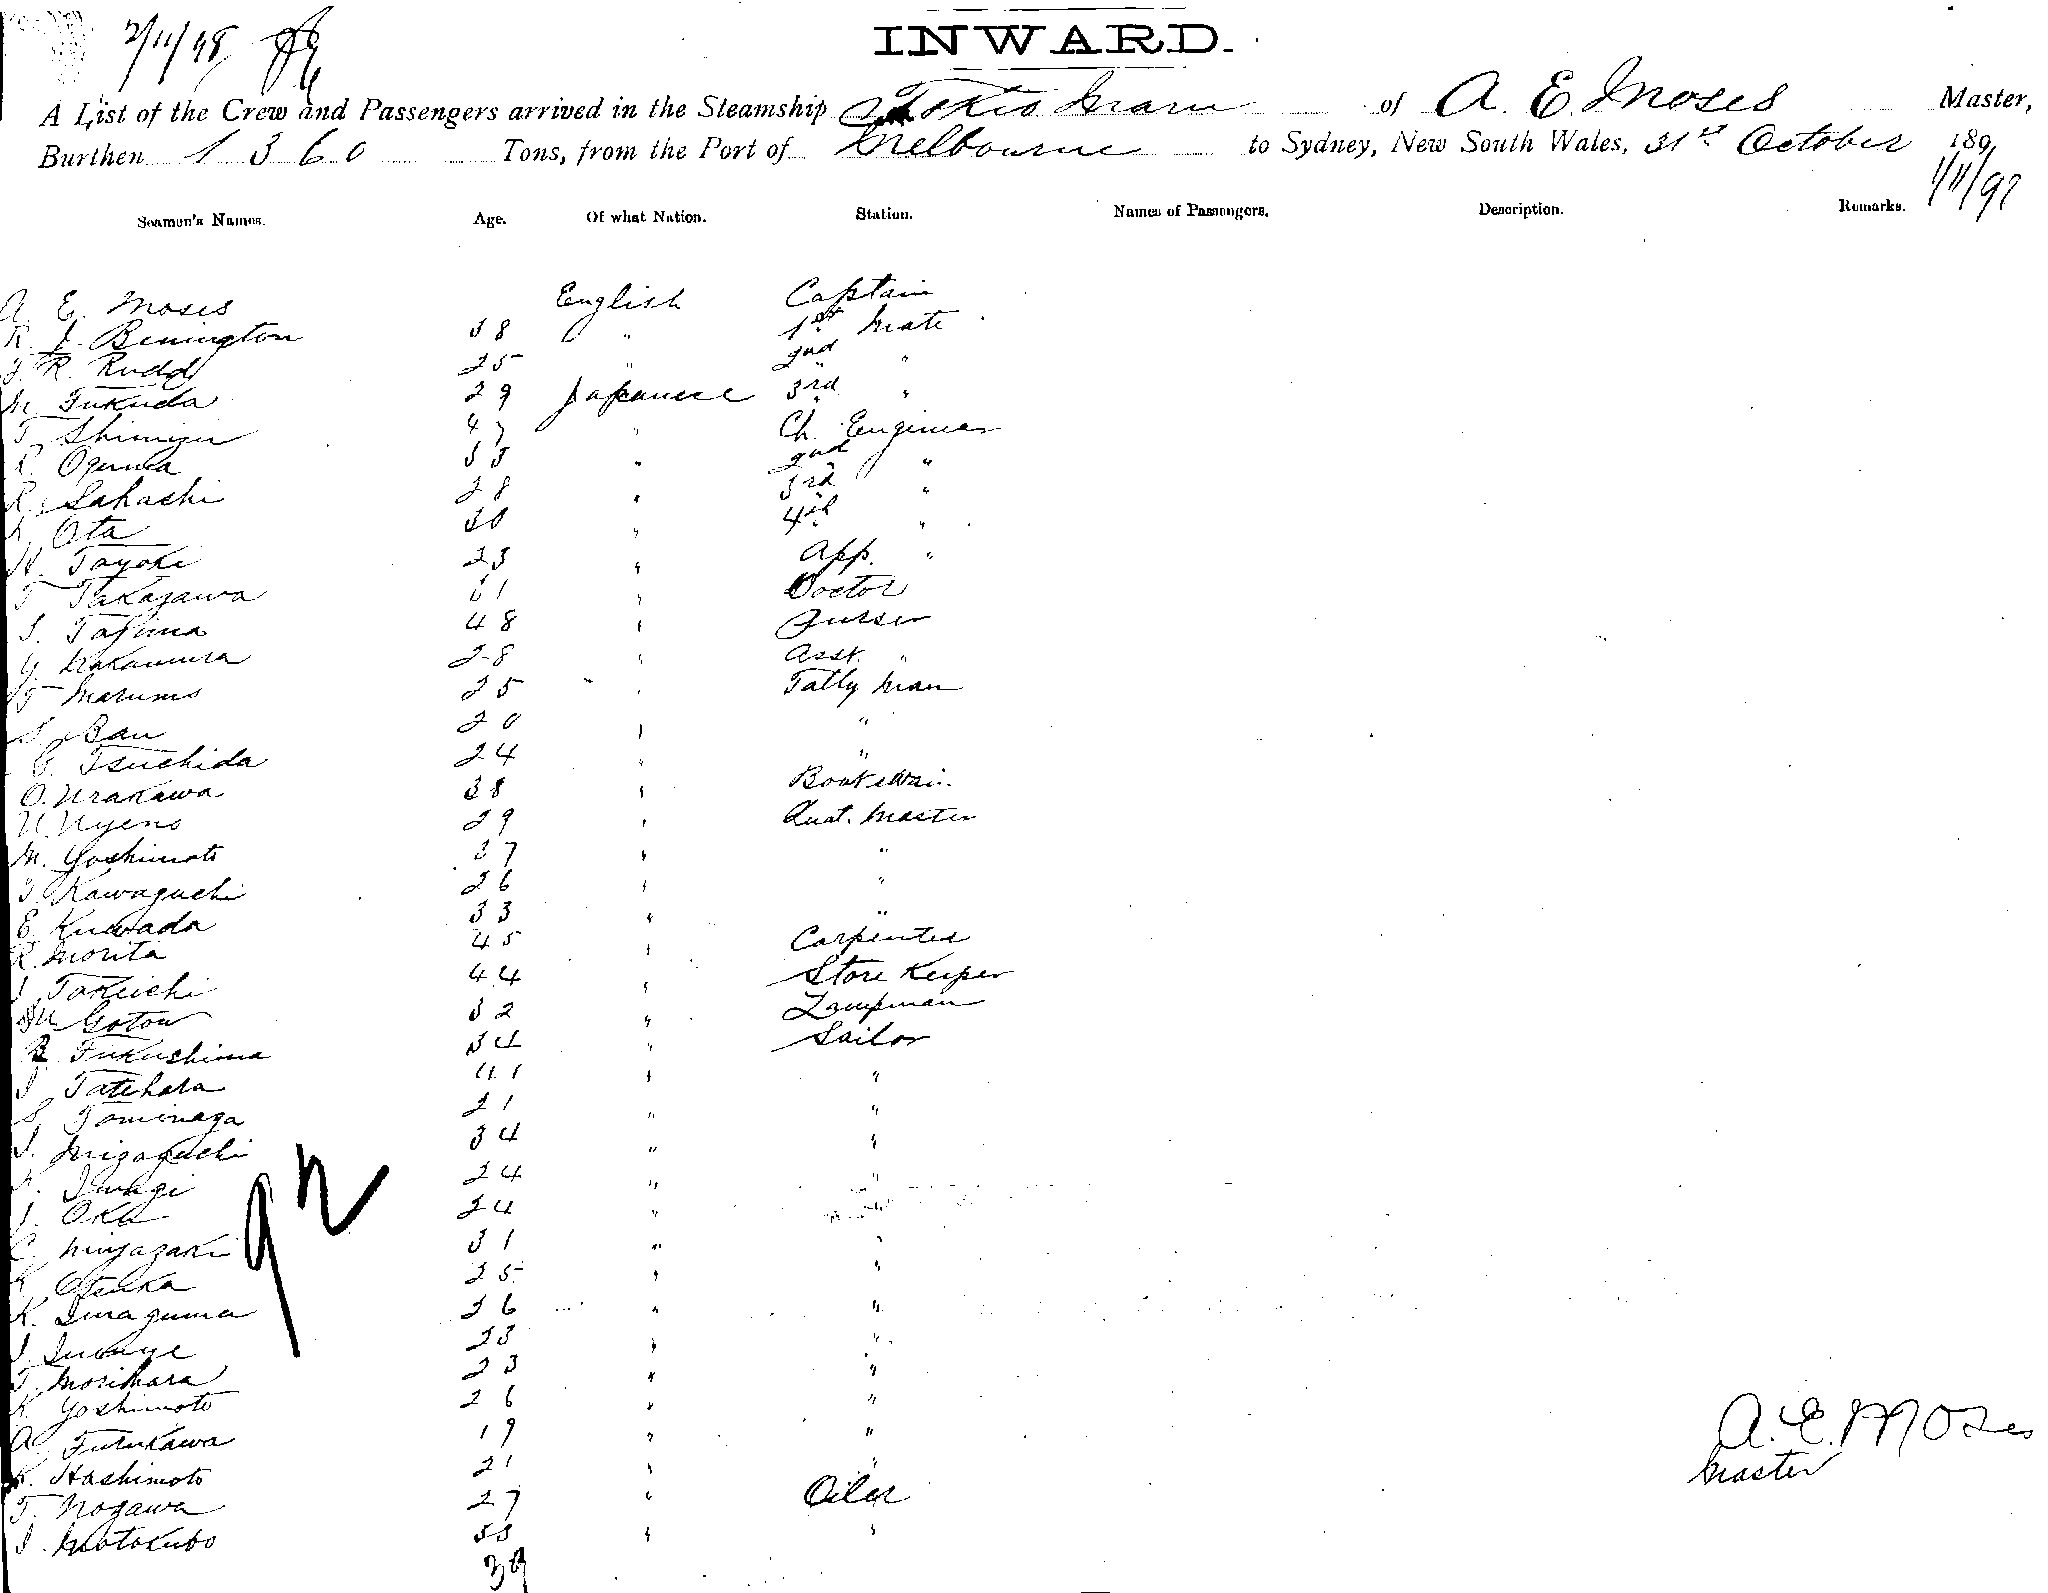 2/11/98
INWARD.
A List of the Crew and Passengers arrived in the Steamship Tokio Maru of A. E. Moses Master,
Burthen 1360 Tons, from the Port of Melbourne to Sydney, New South Wales, 31st October 189
1/11/97
Seamen's Names. Age. Of what Nation. Station. Names of Passengers. Description. Remarks.
A E. Moses English Captain
R. J. Bennington 38 " 1st Mate
J. R. Rudd 25 " 2nd "
M Fukuda 29 Japanese 3rd "
T. Shimizu 47 " Ch. Engineer
Ogura 33 " 2nd "
K. Sahashi 28 " 3rd "
Ota 30 " 4th "
H. Tayoki 23 " App. "
T Takazawa 61 " Doctor
S. Tajima 48 " Purser
G. Nakamura 28 " Asst. "
T Marumo 25 " Tally Man
S. Ban 20 " "
G. Tsuchida 24 " "
O. Urakawa 38 " Boatswain
U. Uyeno 29 " Quat. Master
M. Yoshimoto 37 " "
T. Kawaguchi 26 " "
E. Kuwada 33 " "
R. Morita 45 " Carpenter
Takeichi 44 " Store Keeper
Gotow 32 " Lampman
Fukushima 34 " Sailor
I Tatehara 41 " "
S. Tominaga 21 " "
I. Mizoguchi 34 " "
Iwagi 24 " "
I. Oka 24 " "
C. Miyazaki 31 " "
K. Otsuka 25 " "
K. Imaguma 26 " "
I Inouye 23 " "
T. Morihara 23 " "
K. Yoshimoto 26 " "
A. Furukawa 19 " "
K. Hashimoto 21 " "
T. Nogawa 27 " Oiler
I. Motokubo 33 " "
39
A. E. Moses
Master